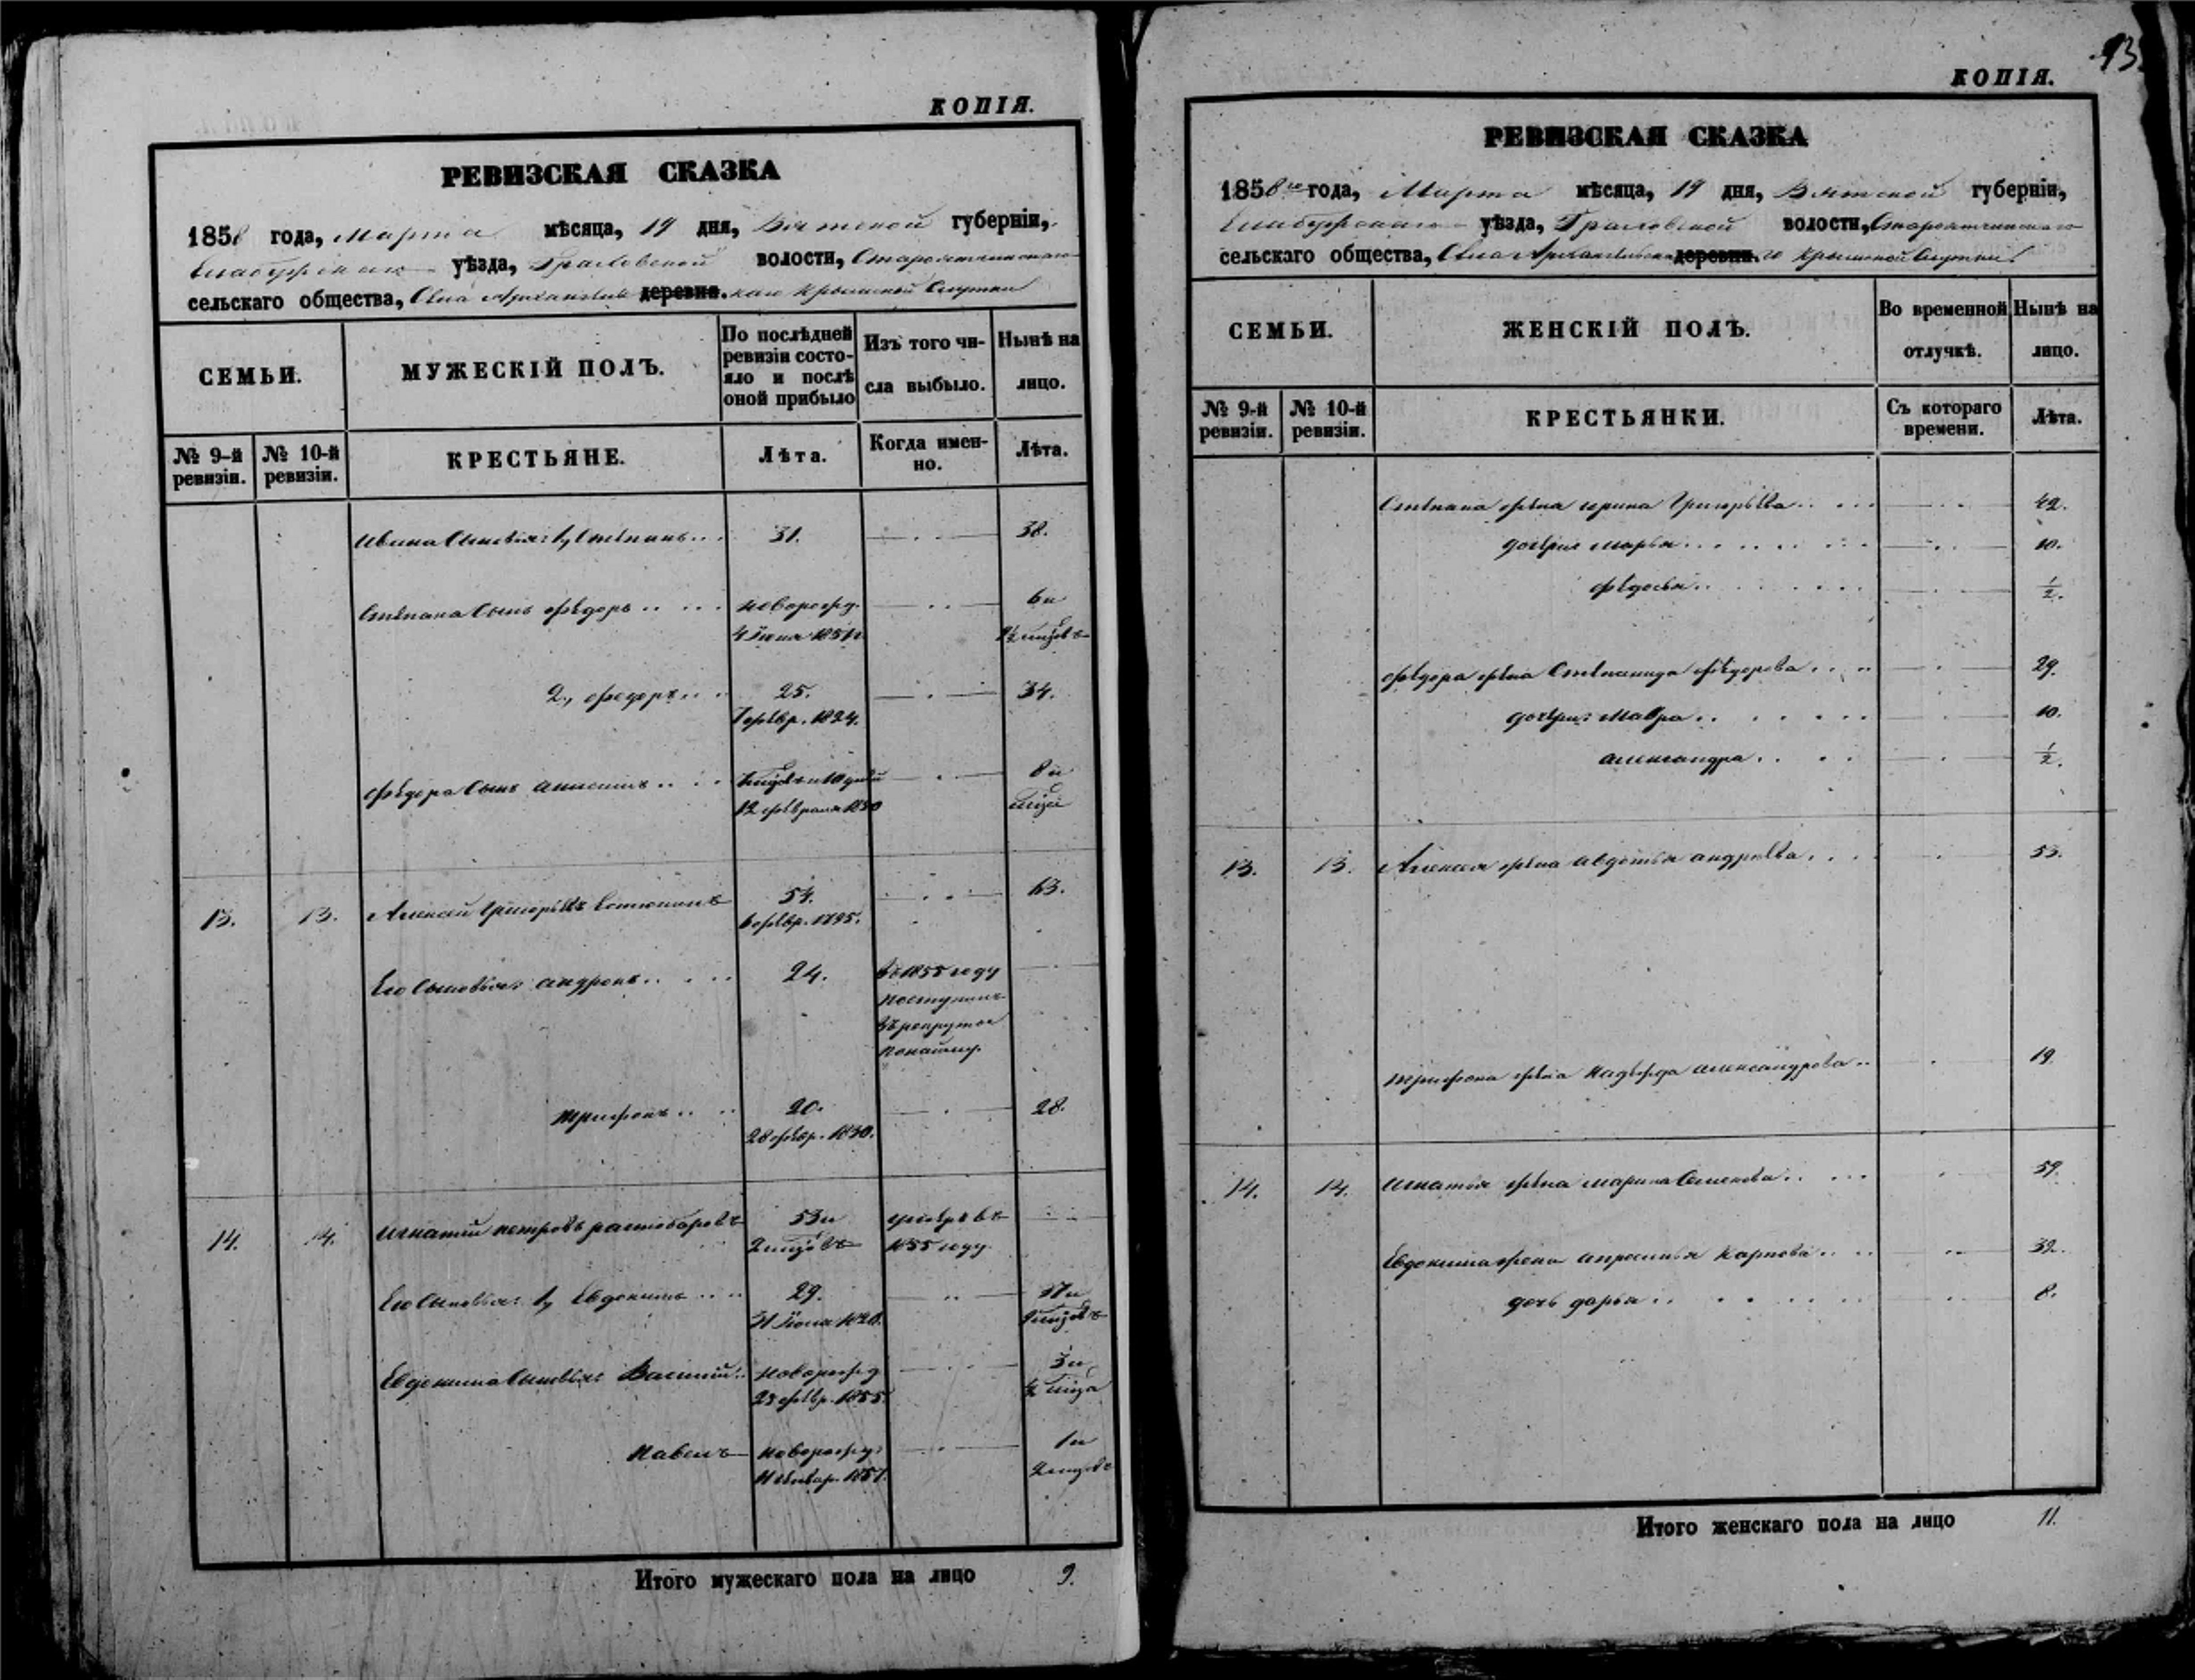 КОПІЯ.
РЕВИЗСКАЯ СКАЗКА
1858 года, Марта мѣсяца, 19 дня, Вятской губерніи,
Елабужскаго уѣзда, Граховской волости,
сельскаго общества, Села деревни.
СЕМЬИ.
МУЖЕСКІЙ ПОЛЪ.
По послѣдней ревизіи состояло и послѣ оной прибыло
Изъ того числа выбыло.
Нынѣ на лицо.
№ 9-й ревизіи.
№ 10-й ревизіи.
КРЕСТЬЯНЕ.
Лѣта.
Когда именно.
Лѣта.
Ивана Сыновья: 1, Степанъ 31. 38.
Степана Сынъ Ѳедоръ новорожд. 6 и
4 Іюня 1851
2, Ѳедоръ 25. 34.
Февр. 1824.
Ѳедора Сынъ 8 и
12 Февраля 1850
13. 13. Алексей Григорьевъ 54. 63.
6 Февр. 1795.
Его Сыновья: Андронъ 24. Въ 1855 году
поступилъ
въ рекруты
по найму.
Трифонъ 20. 28.
28 Февр. 1830.
14. 14. Игнатій Петровъ 53 и умеръ въ
2 1855 году
Его Сыновья: 1, Евдокимъ 29. 37 и
Евдокима Сыновья: Василій новорожд 3 и
23 Февр. 1855.
Павелъ новорожд. 1 и
Январ. 1857.
Итого мужескаго пола на лицо 9.
13
КОПІЯ.
РЕВИЗСКАЯ СКАЗКА
1858 го года, Марта мѣсяца, 19 дня, Вятской губерніи,
Елабужскаго уѣзда, Граховской волости,
сельскаго общества, Села деревни.
СЕМЬИ.
ЖЕНСКІЙ ПОЛЪ.
Во временной отлучкѣ.
Нынѣ на лицо.
№ 9-й ревизіи.
№ 10-й ревизіи.
КРЕСТЬЯНКИ.
Съ котораго времени.
Лѣта.
Степана жена Ирина Григорьева 42.
дочери: Марья 10.
Ѳедосья 1/2.
Ѳедора жена Степанида Ѳедорова 29.
дочери: Мавра 10.
Александра 1/2.
13. 13. Алексея жена Авдотья Андреева 53.
Трифона жена Надежда Александрова 19.
14. 14. Игнатья жена Марина Семенова 59.
Евдокима жена Апросинья Карпова 39.
дочь Дарья 8.
Итого женскаго пола на лицо 11.